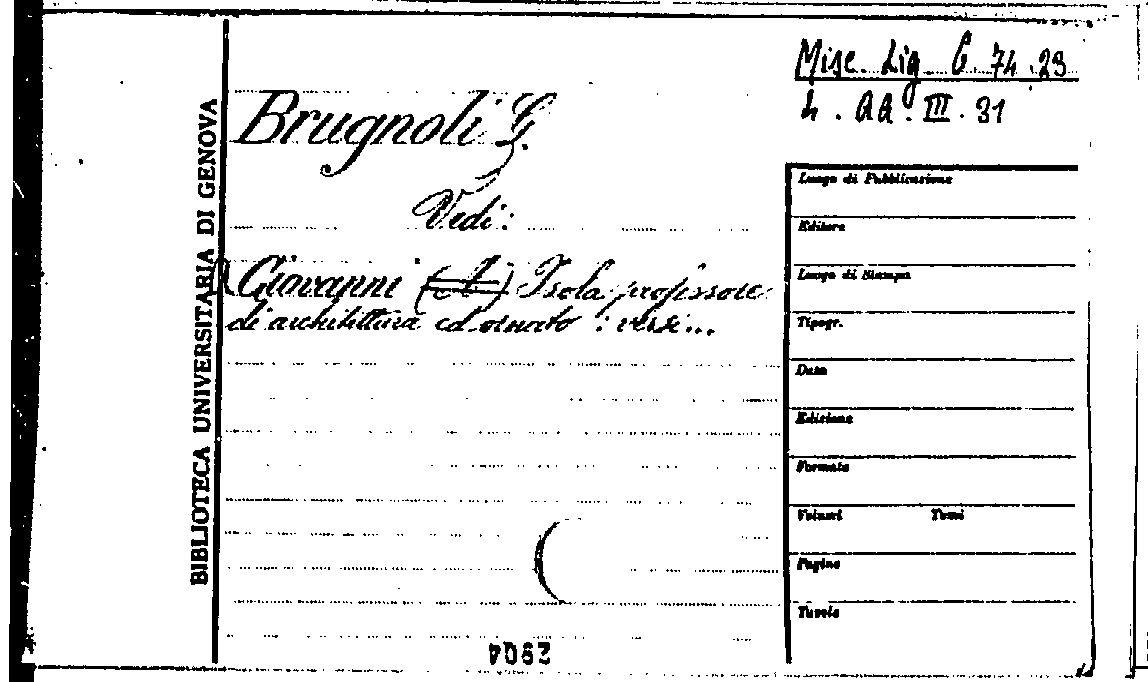 Misc. Lig. C. 74.23
4. AA. III. 31
Brugnoli G.
Vedi:
A Giovanni Isola professore
di architettura ed ornato: versi...
BIBLIOTECA UNIVERSITARIA DI GENOVA
Luogo di Pubblicazione
Editore
Luogo di Stampa
Tipogr.
Data
Edizione
Formato
Volumi Tomi
Pagine
Tavole
2904